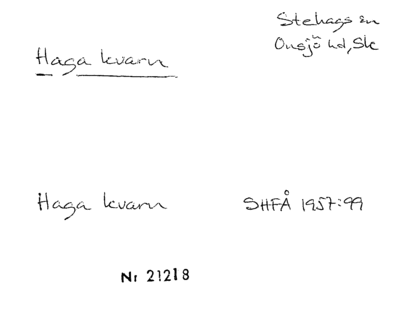 Stehags sn
Onsjö hd, Sk
Haga kvarn
Haga kvarn SHFÅ 1957:99
Nr 21218